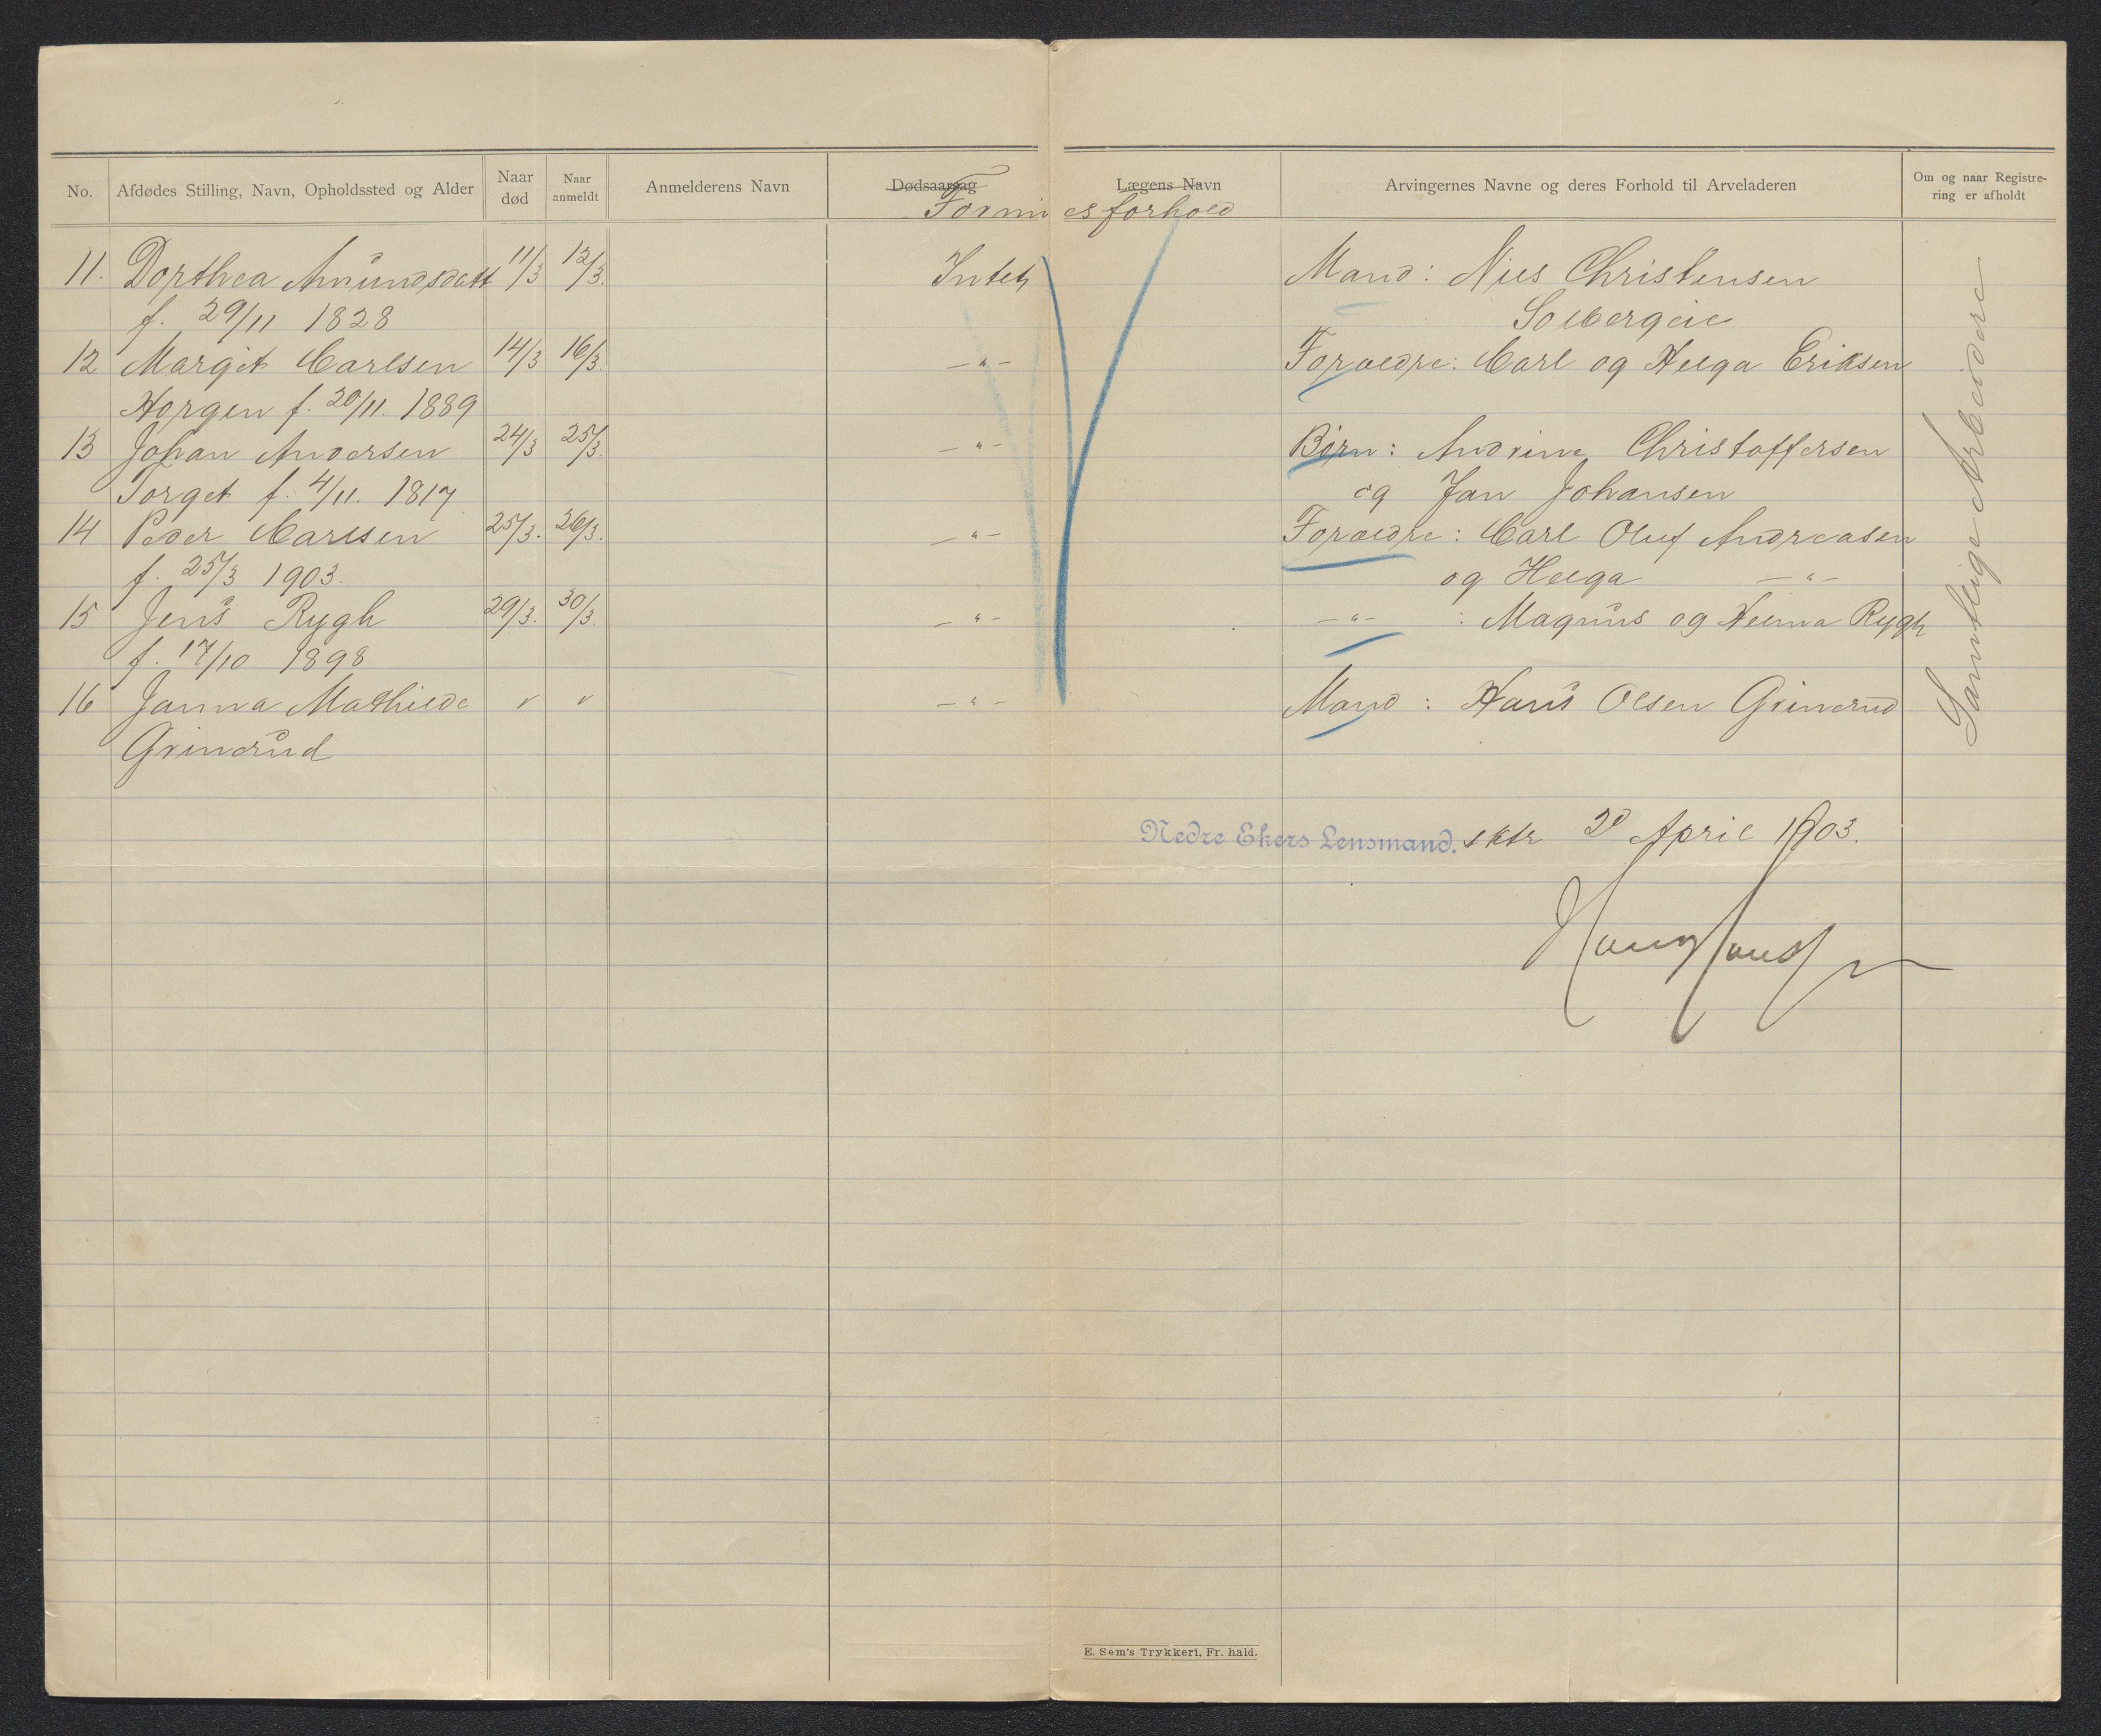 No. Afdødes Stilling, Navn, Opholdssted og Alder Naar død Naar anmeldt Anmelderens Navn Dødsaarsag Lægens Navn Arvingernes Navne og deres Forhold til Arveladeren Om og naar Registrering er afholdt
Formuesforhold
11. Dorthea Amundsdatt 11/3 12/3. Intet Mand: Nils Christensen
f. 29/11 1828 Solbergeie
12 Margit Carlsen 14/3 16/3. —"— Forældre: Carl og Helga Eriksen
Horgen f. 20/11. 1889
13 Johan Andersen 24/3 25/3. —"— Børn: Andrine Christoffersen
Torget f. 4/11. 1817 og Jan Johansen
14 Peder Carlsen 25/3. 26/3. —"— Forældre: Carl Oluf Andreasen
f. 25/3 1903. og Helga —"—
15 Jens Rygh 29/3. 30/3. —"— —"— : Magnus og Helma Rygh
f. 17/10 1898
16 Janna Mathilde v v —"— Mand: Hans Olsen Grinerud
Grinerud
Samtlige Arbeidere
Nedre Ekers Lensmand. sktr 2 April 1903.
E. Sem's Trykkeri, Fr. hald.